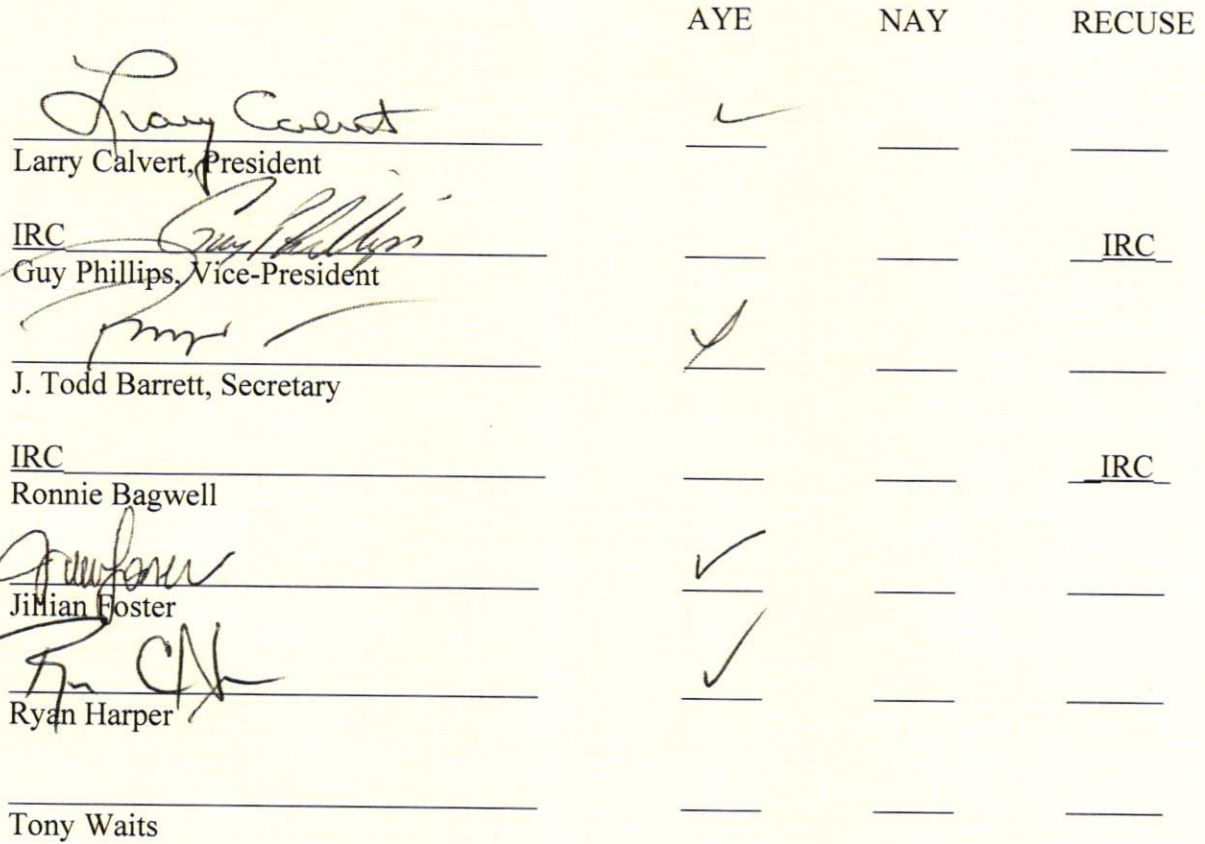 AYE NAY RECUSE
Larry Calvert
Larry Calvert, President
IRC Guy Phillips IRC
Guy Phillips, Vice-President
J. Todd Barrett, Secretary
IRC IRC
Ronnie Bagwell
Jillian Foster
Ryan Harper
Tony Waits